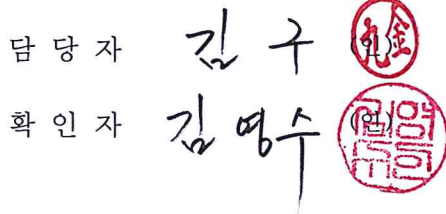 담 당 자 김 구 (인)
확 인 자 김 영수 (인)